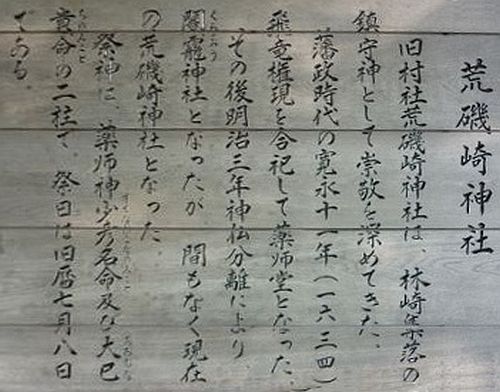 荒磯崎神社
旧村社荒磯崎神社は、林崎集落の
鎮守神として崇敬を深めてきた。
藩政時代の寛永十一年(一六三四)
飛竜権現を合祀して薬師堂となった
その後明治三年神仏分離により
闇龗神社となったが 間もなく現在
の荒磯崎神社となった。
祭神は、薬師神少彦名命及び大己
貴命の二柱で、祭日は旧暦七月八日
である。